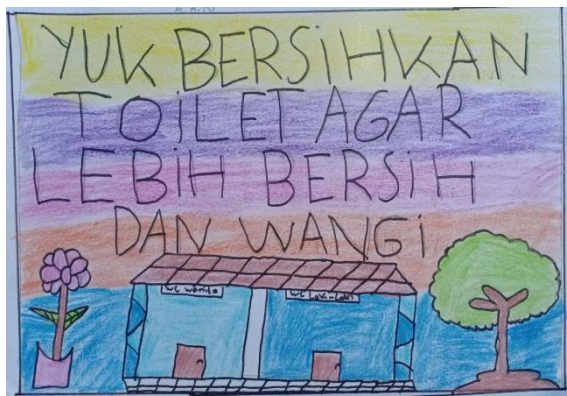 YUK BERSiHKAN
TOiLET AGAR
LEBiH BERSiH
DAN WANGi
WC Wanita
WC Laki-Laki